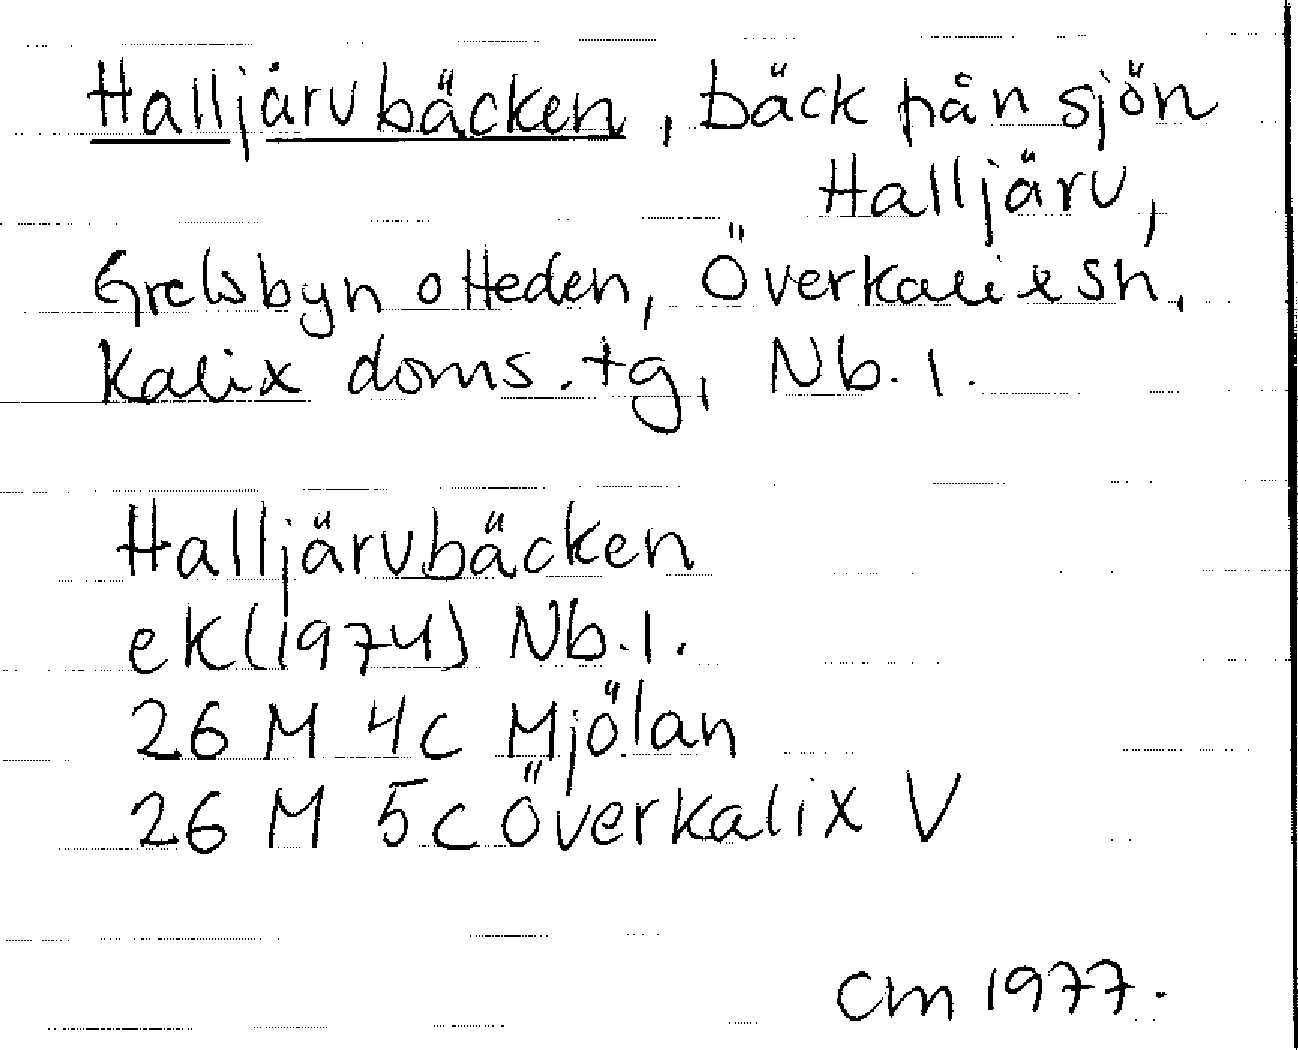 Halljärvbäcken, bäck från sjön
Halljärv,
Grelsbyn o Heden, Överkalix sn,
Kalix doms. tg, Nb. l.
Halljärvbäcken
ek (1974) Nb. l.
26 M 4c Mjölan
26 M 5c Överkalix V
CM 1977.